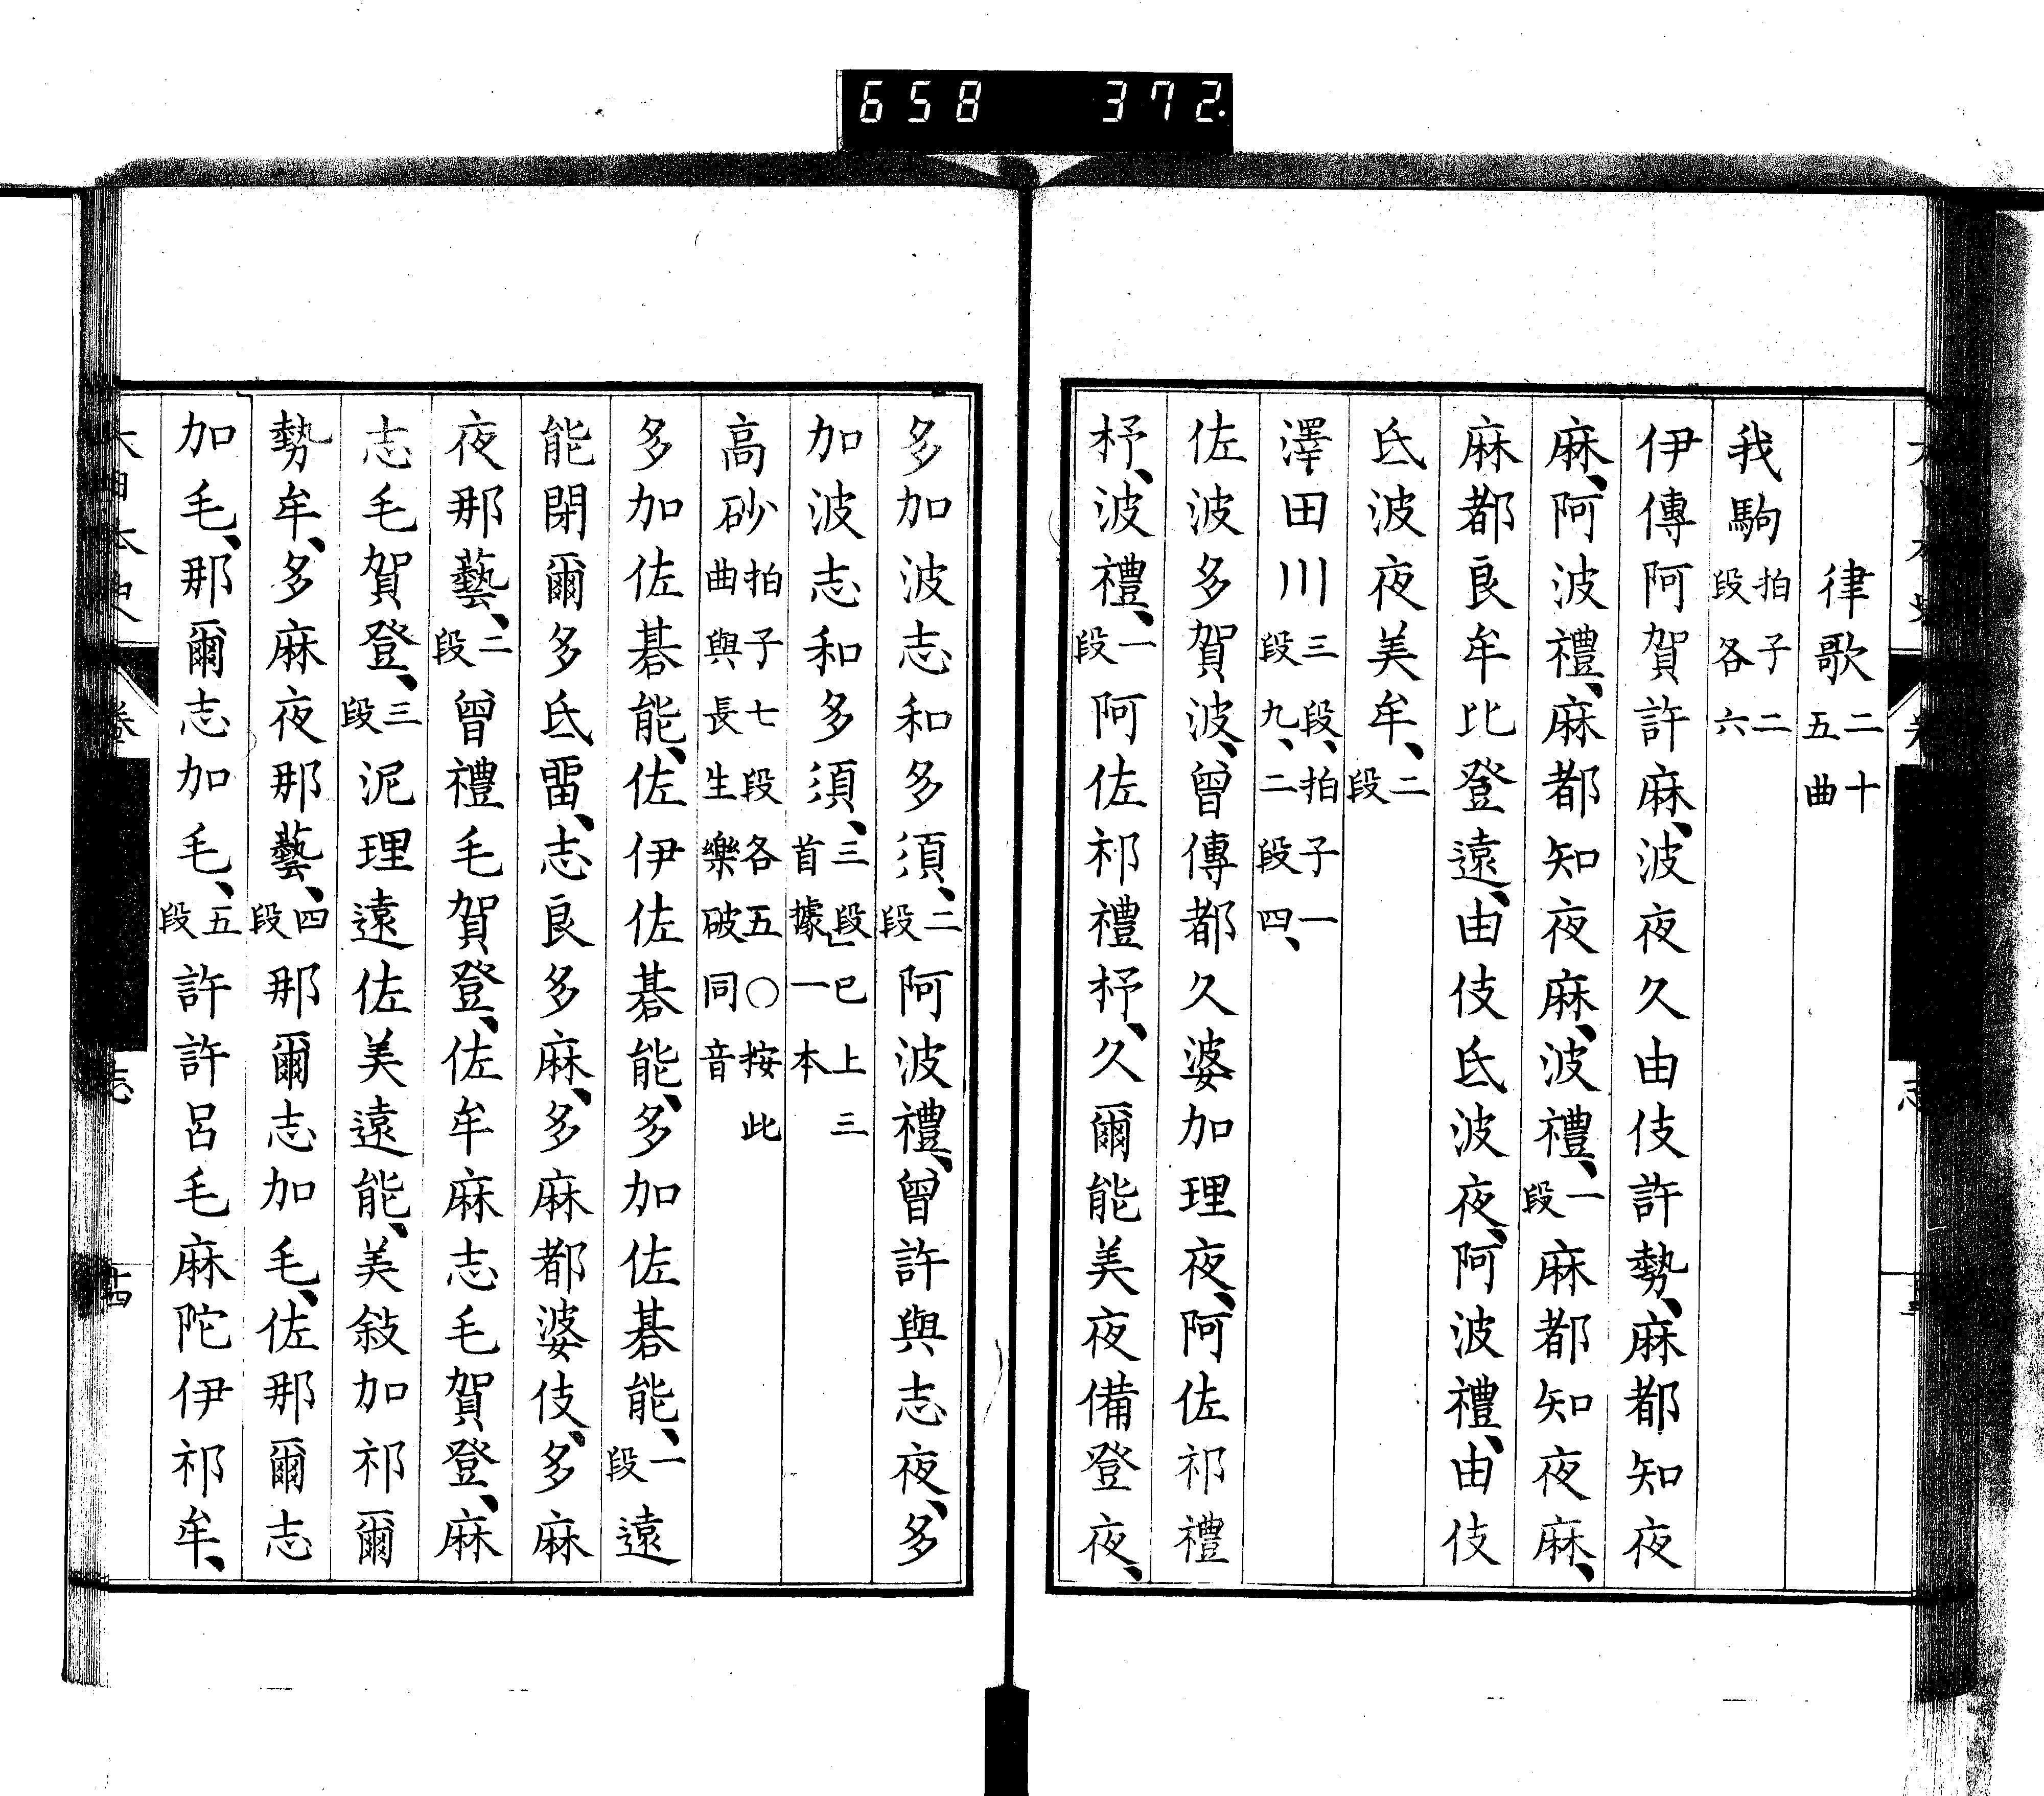 658 372.
律歌二十五曲
我駒拍子二段各六
伊傳阿賀許麻、波夜久由伎許勢、麻都知夜
麻、阿波禮、麻都知夜麻、波禮、一段麻都知夜麻、
麻都良牟比登遠、由伎氐波夜、阿波禮、由伎
氐波夜美牟、二段
澤田川三段、拍子一九、二段四、
佐波多賀波、曾傳都久婆加理夜、阿佐祁禮
杼、波禮、一段阿佐祁禮杼、久爾能美夜備登夜、
多加波志和多須、二段阿波禮、曾許與志夜、多
加波志和多須、三段已上三首據一本
高砂拍子七段各五○按此曲與長生樂破同音
多加佐碁能、佐伊佐碁能、多加佐碁能、一段遠
能閇爾多氐雷、志良多麻、多麻都婆伎、多麻
夜那藝、二段曾禮毛賀登、佐牟麻志毛賀登、麻
志毛賀登、三段泥理遠佐美遠能、美敍加祁爾
勢牟、多麻夜那藝、四段那爾志加毛、佐那爾志
加毛、那爾志加毛、五段許許呂毛麻陀伊祁牟、
志